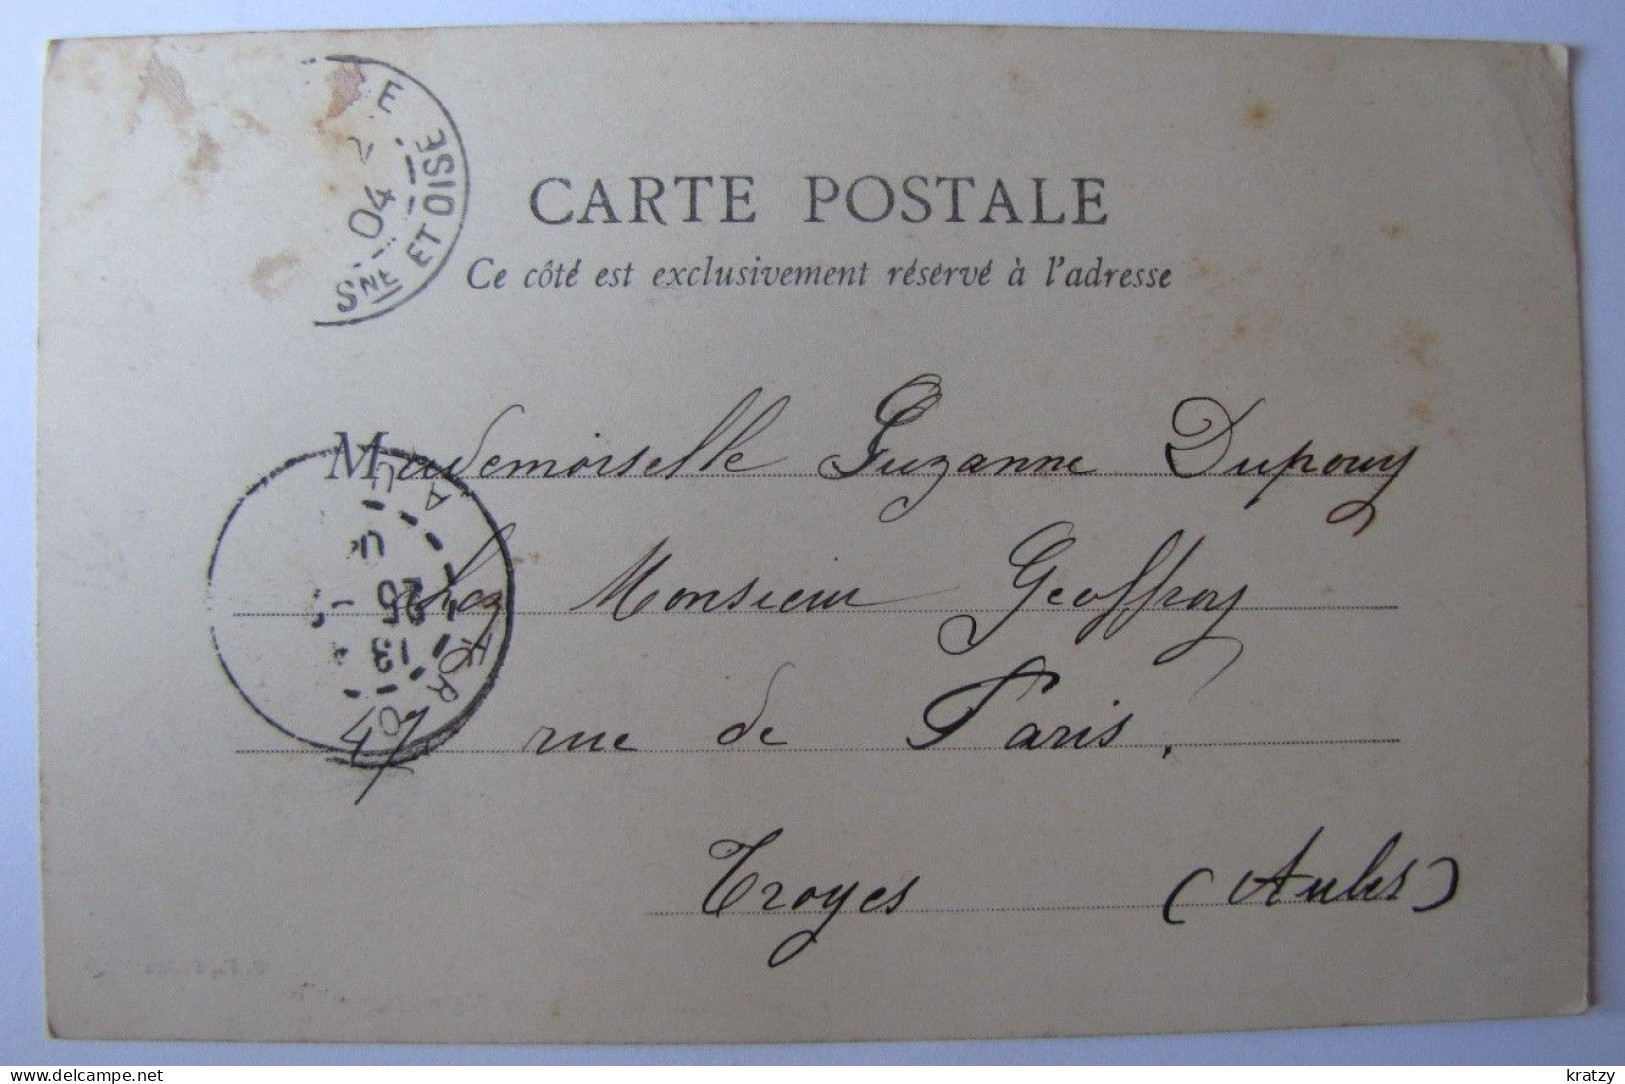 E
04
SNE ET OISE
CARTE POSTALE
Ce côté est exclusivement réservé à l'adresse
Mademoiselle Suzanne Dupouy
chez Monsieur Geoffroy
47 rue de Paris.
Troyes (Aube)
13
25
kratzy